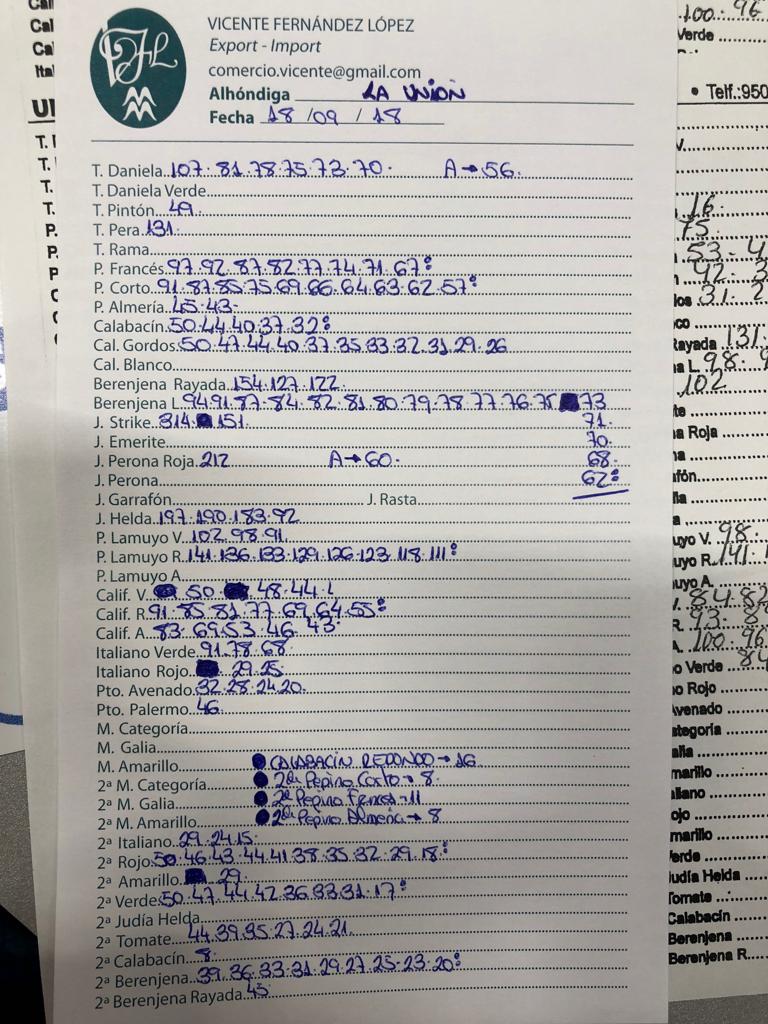 VICENTE FERNÁNDEZ LÓPEZ
Export - Import
comercio.vicente@gmail.com
Alhóndiga LA UNION
Fecha 18 / 09 / 18
T. Daniela 107. 81. 78. 75. 73. 70. A→56.
T. Daniela Verde
T. Pintón 49.
T. Pera 131
T. Rama
P. Francés 97. 92. 87. 82. 77. 74. 71. 67:
P. Corto 91. 87. 85. 75. 69. 66. 64. 63. 62. 57:
P. Almería 45. 43.
Calabacín 50. 44. 40. 37. 32:
Cal. Gordos 50. 47. 44. 40. 37. 35. 33. 32. 31. 29. 26
Cal. Blanco
Berenjena Rayada 154. 127. 122.
Berenjena L. 94. 91. 87. 84. 82. 81. 80. 79. 78. 77. 76. 75 73
J. Strike 314. 151. 71.
J. Emerite 70.
J. Perona Roja 212 A→60. 68.
J. Perona 62:
J. Garrafón J. Rasta
J. Helda 197. 190. 183. 92
P. Lamuyo V. 102. 98. 91.
P. Lamuyo R. 141. 136. 133. 129. 126. 123. 118. 111:
P. Lamuyo A.
Calif. V. 50. 48. 44.
Calif. R. 91. 85. 81. 77. 69. 64. 55:
Calif. A. 83. 69. 53. 46. 43.
Italiano Verde 91. 78. 68
Italiano Rojo 29. 25.
Pto. Avenado 32. 28. 24. 20.
Pto. Palermo 46.
M. Categoría
M. Galia
M. Amarillo CALABACÍN REDONDO → 16
2ª M. Categoría 2ª Pepino Corto → 8.
2ª M. Galia 2ª Pepino Frances → 11
2ª M. Amarillo 2ª Pepino Almería → 8
2ª Italiano 29. 24. 15.
2ª Rojo 50. 46. 43. 44. 41. 38. 35. 32. 29. 18:
2ª Amarillo 29.
2ª Verde 50. 47. 44. 42. 36. 33. 31. 17:
2ª Judía Helda
2ª Tomate 44. 39. 35. 27. 24. 21.
2ª Calabacín 8.
2ª Berenjena 39. 36. 33. 31. 29. 27. 25. 23. 20:
2ª Berenjena Rayada 45
100. 96
Verde
• Telf.:950
16
75.
Rayada 131.
102
Roja
uyo V. 98.
uyo R. 141.
uyo A.
84. 82
R. 93.
100. 96
o Verde 84
o Rojo
Avenado
ategoría
marillo
aliano
ojo
marillo
erde
Judía Helda
Tomate
Calabacín
Berenjena
Berenjena R.